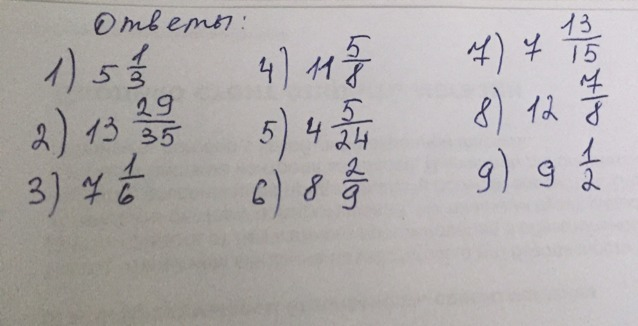 Ответы:
1) 5 1/3
2) 13 29/35
3) 7 1/6
4) 11 5/8
5) 4 5/24
6) 8 2/9
7) 7 13/15
8) 12 7/8
9) 9 1/2